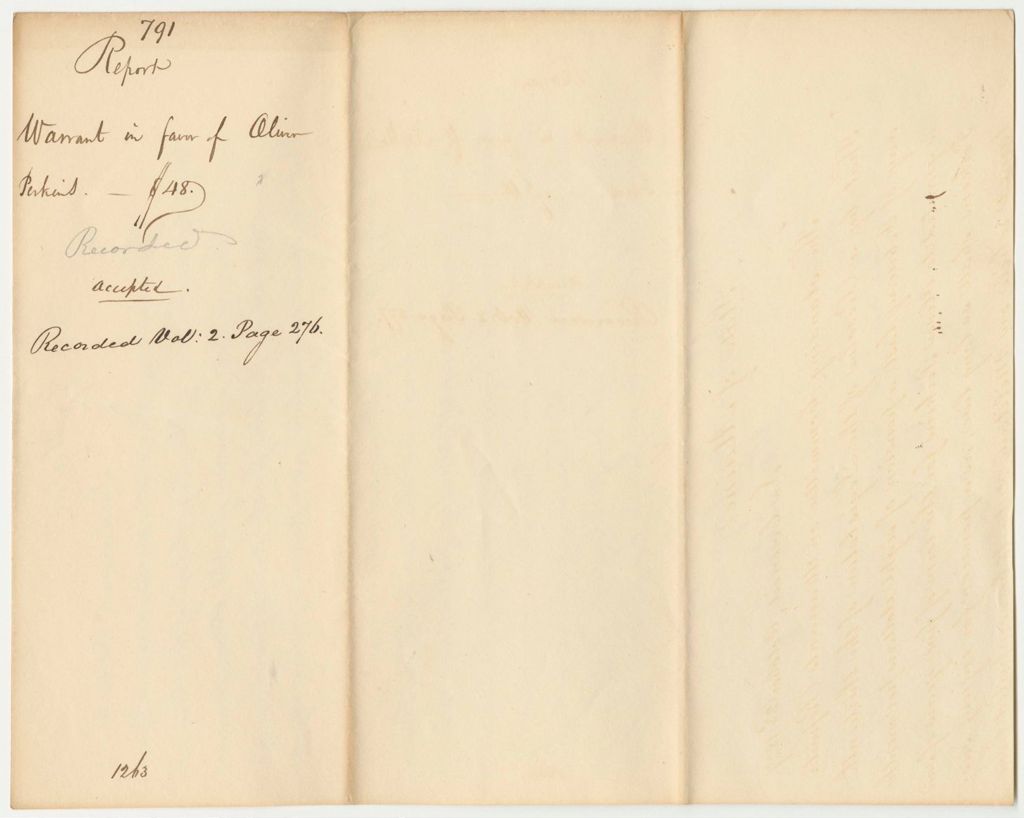 791
Report
Warrant in favor of Oliver
Perkins. — $48.
Recorded.
accepted.
Recorded Vol: 2. Page 276.
1263